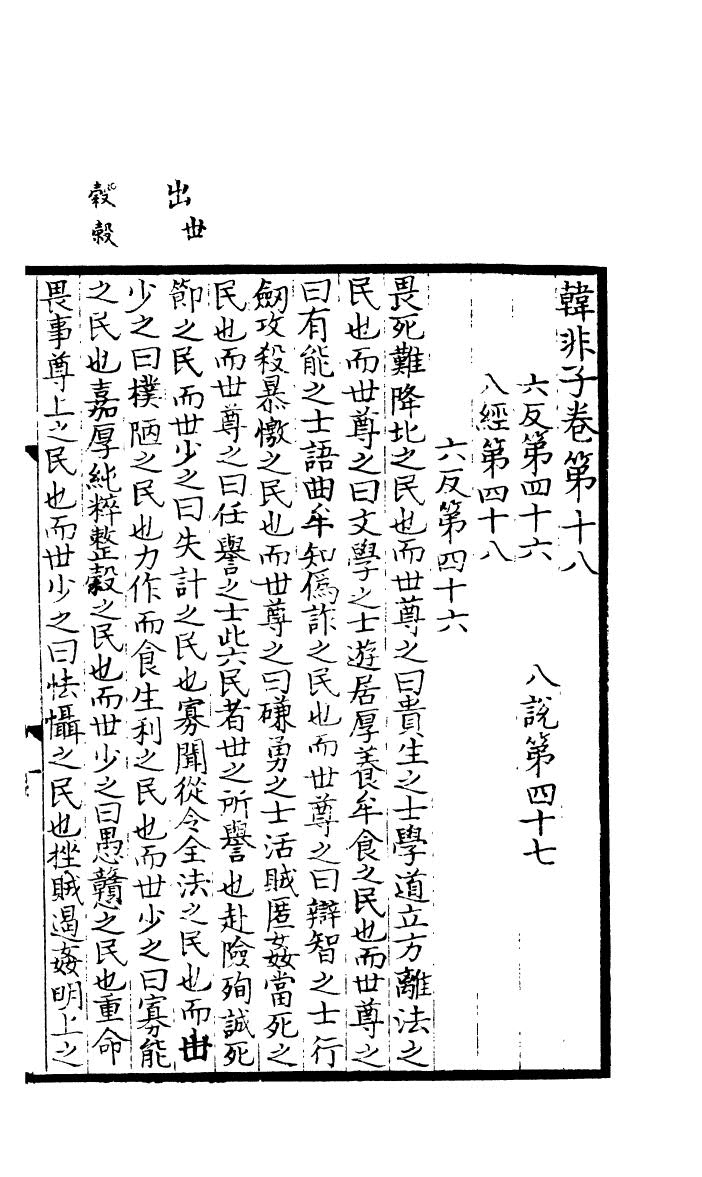 韓非子卷第十八
六反第四十六　八說第四十七
八經第四十八
六反第四十六
畏死難降北之民也而世尊之曰貴生之士學道立方離法之
民也而世尊之曰文學之士遊居厚養牟食之民也而世尊之
曰有能之士語曲牟知僞詐之民也而世尊之曰辯智之士行
劒攻殺暴憿之民也而世尊之曰磏勇之士活賊匿姦當死之
民也而世尊之曰任譽之士此六民者世之所譽也赴險殉誠死
節之民而世少之曰失計之民也寡聞從令全法之民也而世
少之曰樸陋之民也力作而食生利之民也而世少之曰寡能
之民也嘉厚純粹整穀之民也而世少之曰愚戇之民也重命
畏事尊上之民也而世少之曰怯懾之民也挫賊遏姦明上之
出 世
穀 榖